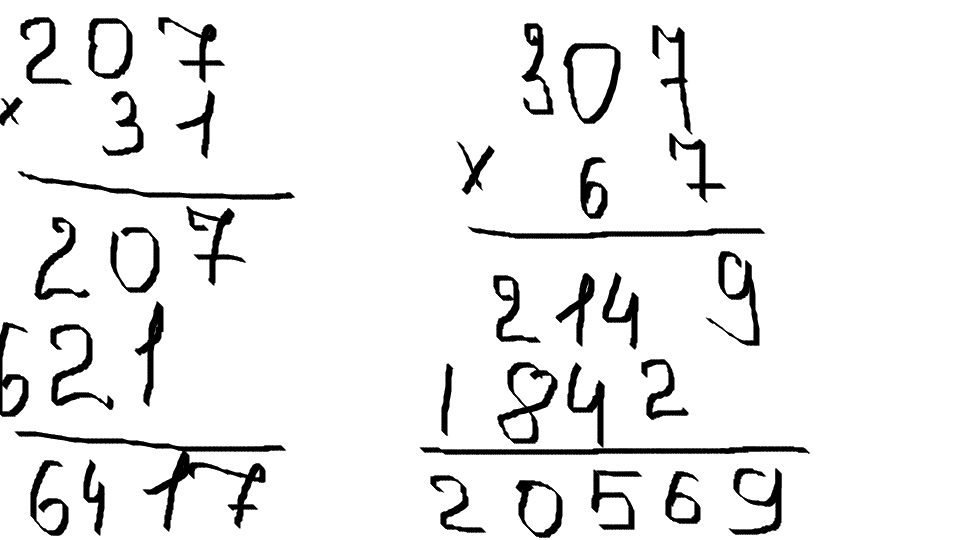 207
× 31
207
621
6417
307
× 67
2149
1842
20569